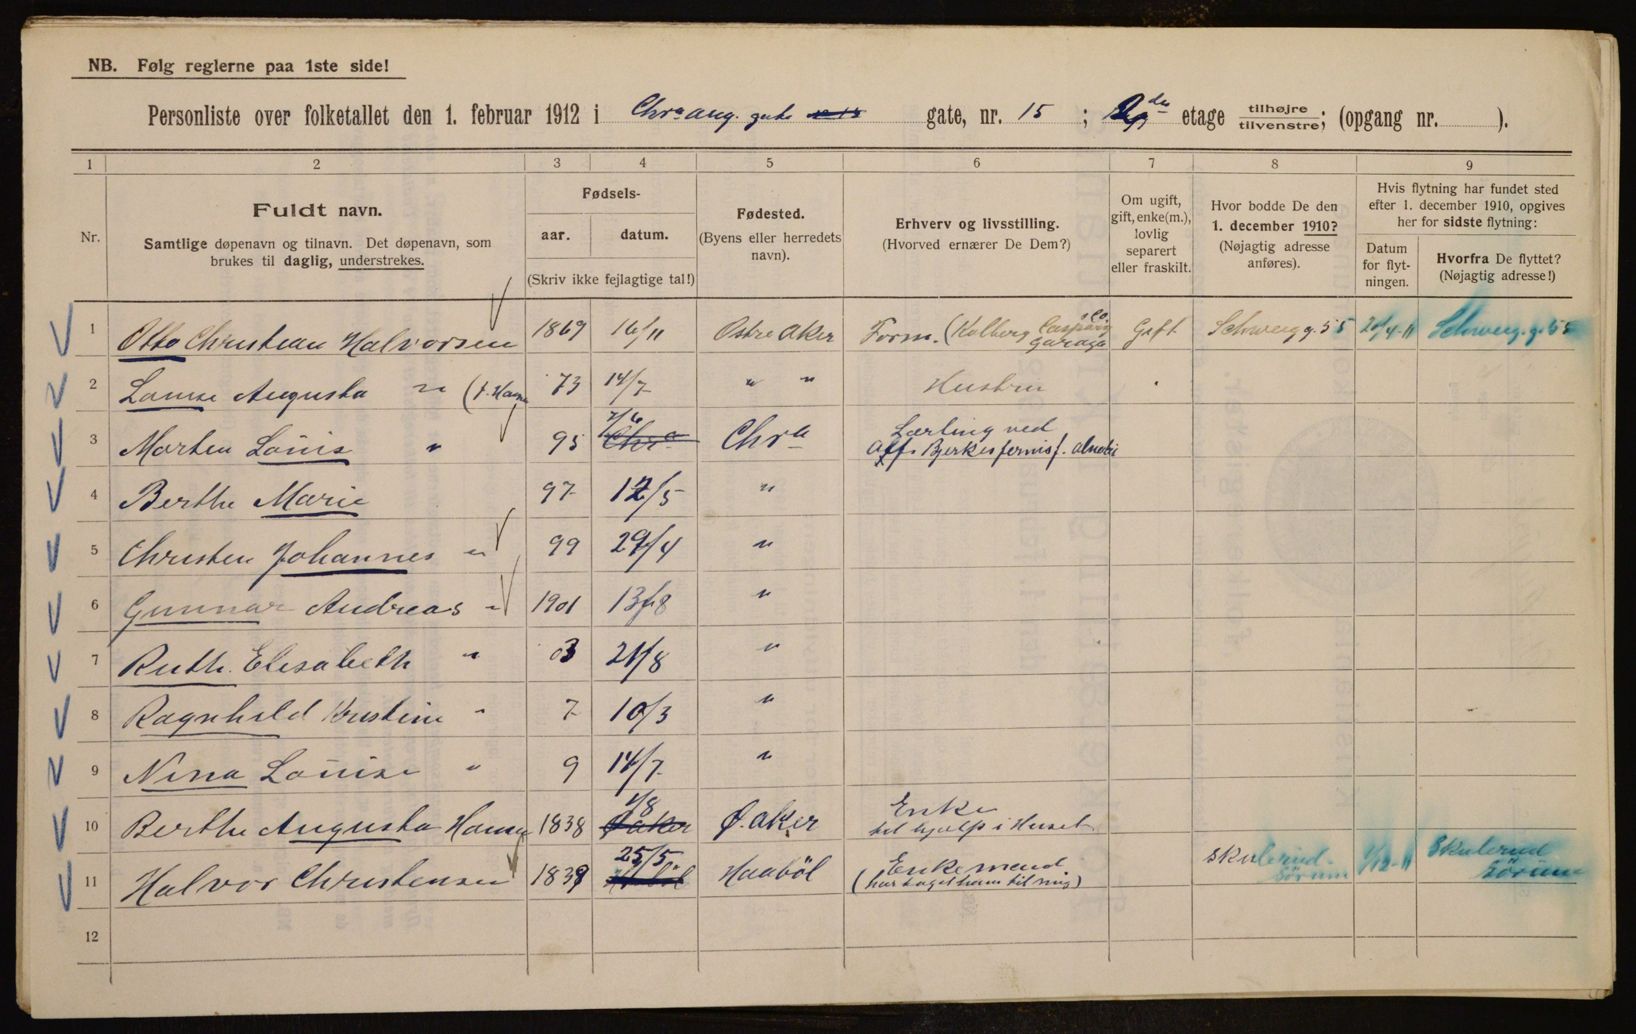 NB. Følg reglerne paa 1ste side!
Personliste over folketallet den 1. februar 1912 i Chr. aug. gate gate, nr. 15; etage tilhøjre tilvenstre; (opgang nr. ).
1 2 3 4 5 6 7 8 9
Nr.
Fuldt navn.
Samtlige døpenavn og tilnavn. Det døpenavn, som
brukes til daglig, understrekes.
Fødsels-
aar. datum.
(Skriv ikke fejlagtige tal!)
Fødested.
(Byens eller herredets
navn).
Erhverv og livsstilling.
(Hvorved ernærer De Dem?)
Om ugift,
gift, enke(m.),
lovlig
separert
eller fraskilt.
Hvor bodde De den
1. december 1910?
(Nøjagtig adresse
anføres).
Hvis flytning har fundet sted
efter 1. december 1910, opgives
her for sidste flytning:
Datum
for flyt-
ningen.
Hvorfra De flyttet?
(Nøjagtig adresse!)
1 Otto Christian Halvorsen 1869 16/11 Østre Aker Form. (Kolberg Caspary & Co. Garage Gift Schweig.g. 55 20/4-11 Schweig.g. 55
2 Louise Augusta " (f. Hansen 73 14/7 " " Hustru
3 Morten Louis " 95 7/6 Chra Lærling ved
Alf. Bjerkes fernisf. Alnabr
4 Berthe Marie 97 12/5 "
5 Christen Johannes " 99 29/4 "
6 Gunnar Andreas " 1901 13/8 "
7 Ruth Elisabeth " 03 21/8 "
8 Ragnhild Kristine " 7 10/3 "
9 Nina Louise " 9 14/7 "
10 Berthe Augusta Hansen 1838 1/8 Ø. Aker Enke
til hjælp i Huset
11 Halvor Christensen 1839 25/5 Haabøl Enkemand
(har taget ham til mig) Skulerud Sørum 1/12-11 Skulerud Sørum
12